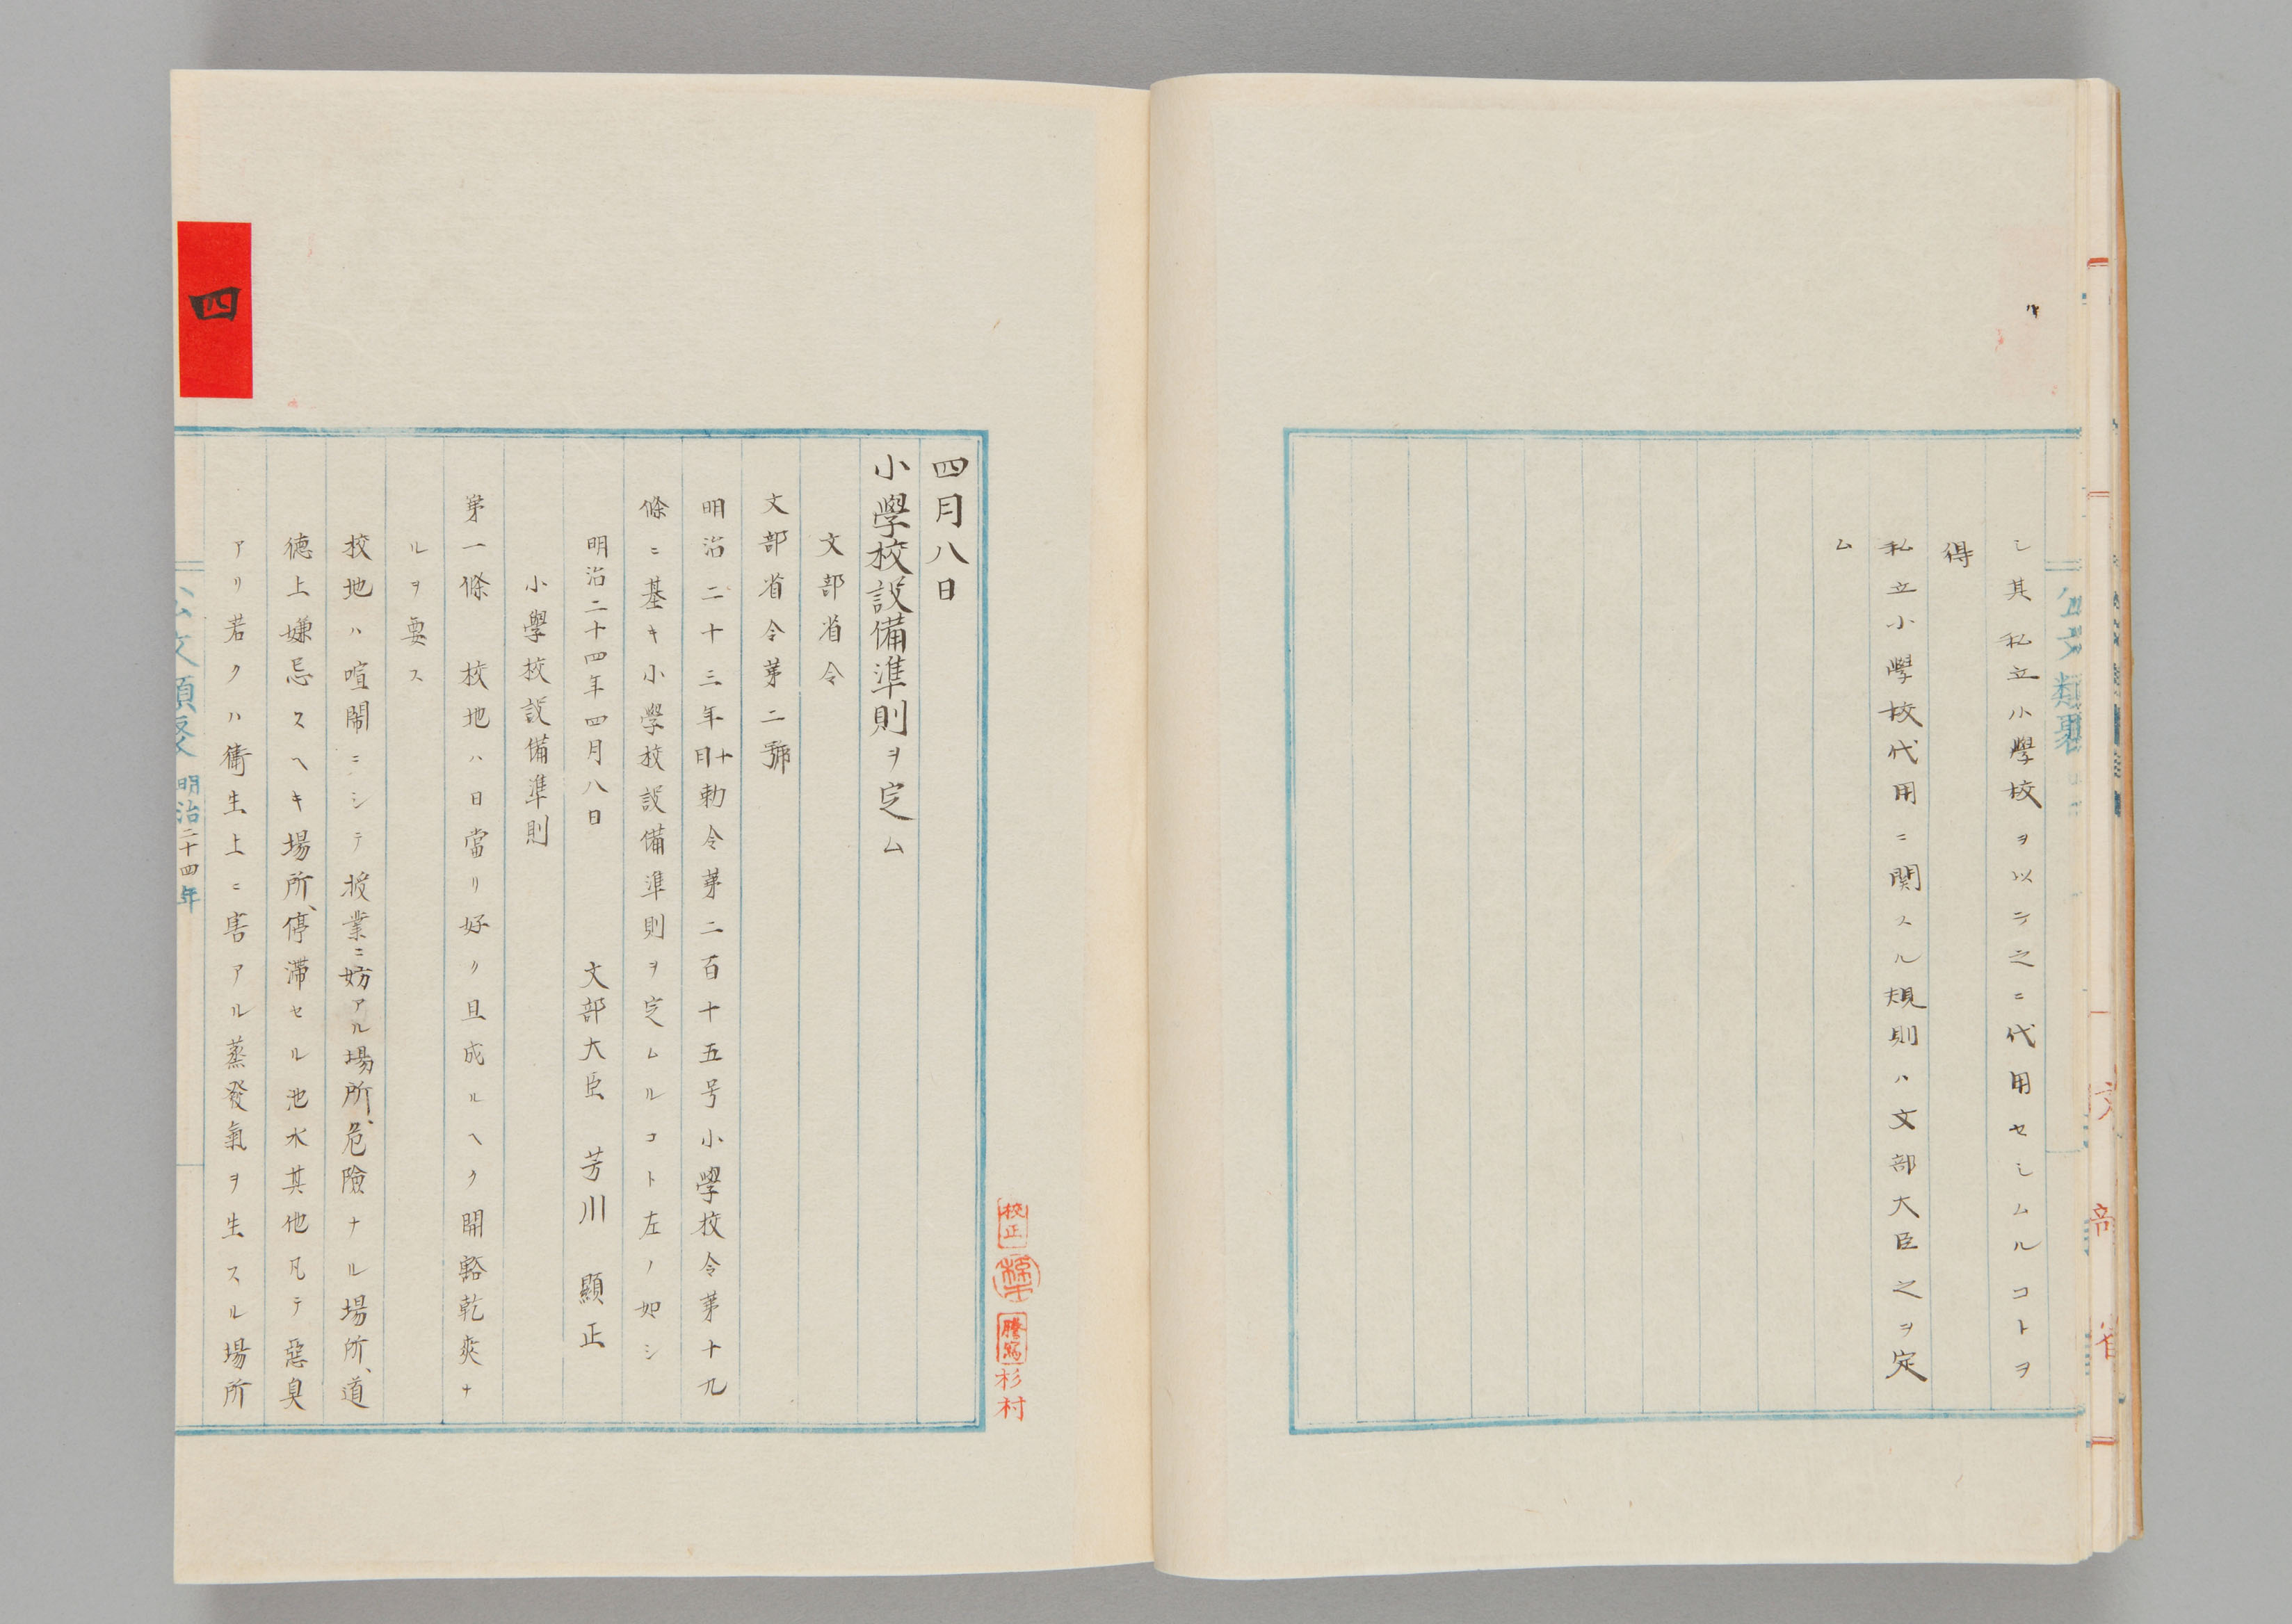 シ其私立小學校ヲ以テ之ニ代用セシムルコトヲ
得
私立小學校代用ニ関スル規則ハ文部大臣之ヲ定
ム
公文類聚
四月八日
小學校設備準則ヲ定ム
文部省令
文部省令第二號
明治二十三年十日勅令第二百十五号小學校令第十九
條ニ基キ小學校設備準則ヲ定ムルコト左ノ如シ
明治二十四年四月八日 文部大臣 芳川顯正
小學校設備準則
第一條 校地ハ日當リ好ク且成ルヘク開豁乾爽ナ
ルヲ要ス
校地ハ喧鬧ニシテ授業ニ妨アル場所、危險ナル場所、道
徳上嫌忌スヘキ場所、停滯セル池水其他凡テ惡臭
アリ若クハ衞生上ニ害アル蒸發氣ヲ生スル場所
公文類聚 明治二十四年
四
校正
謄寫
杉村